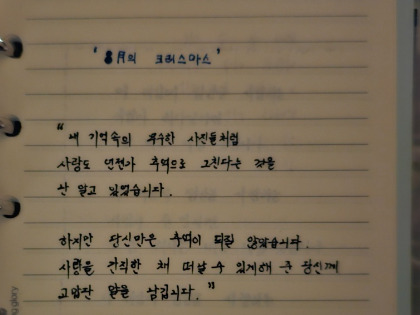 '8월의 크리스마스'
"내 기억속의 무수한 사진들처럼
사랑도 언젠가 추억으로 그친다는 것을
난 알고 있었습니다.
하지만 당신만은 추억이 되질 않았습니다.
사랑을 간직한 채 떠날 수 있게해 준 당신께
고맙단 말을 남깁니다."
glory